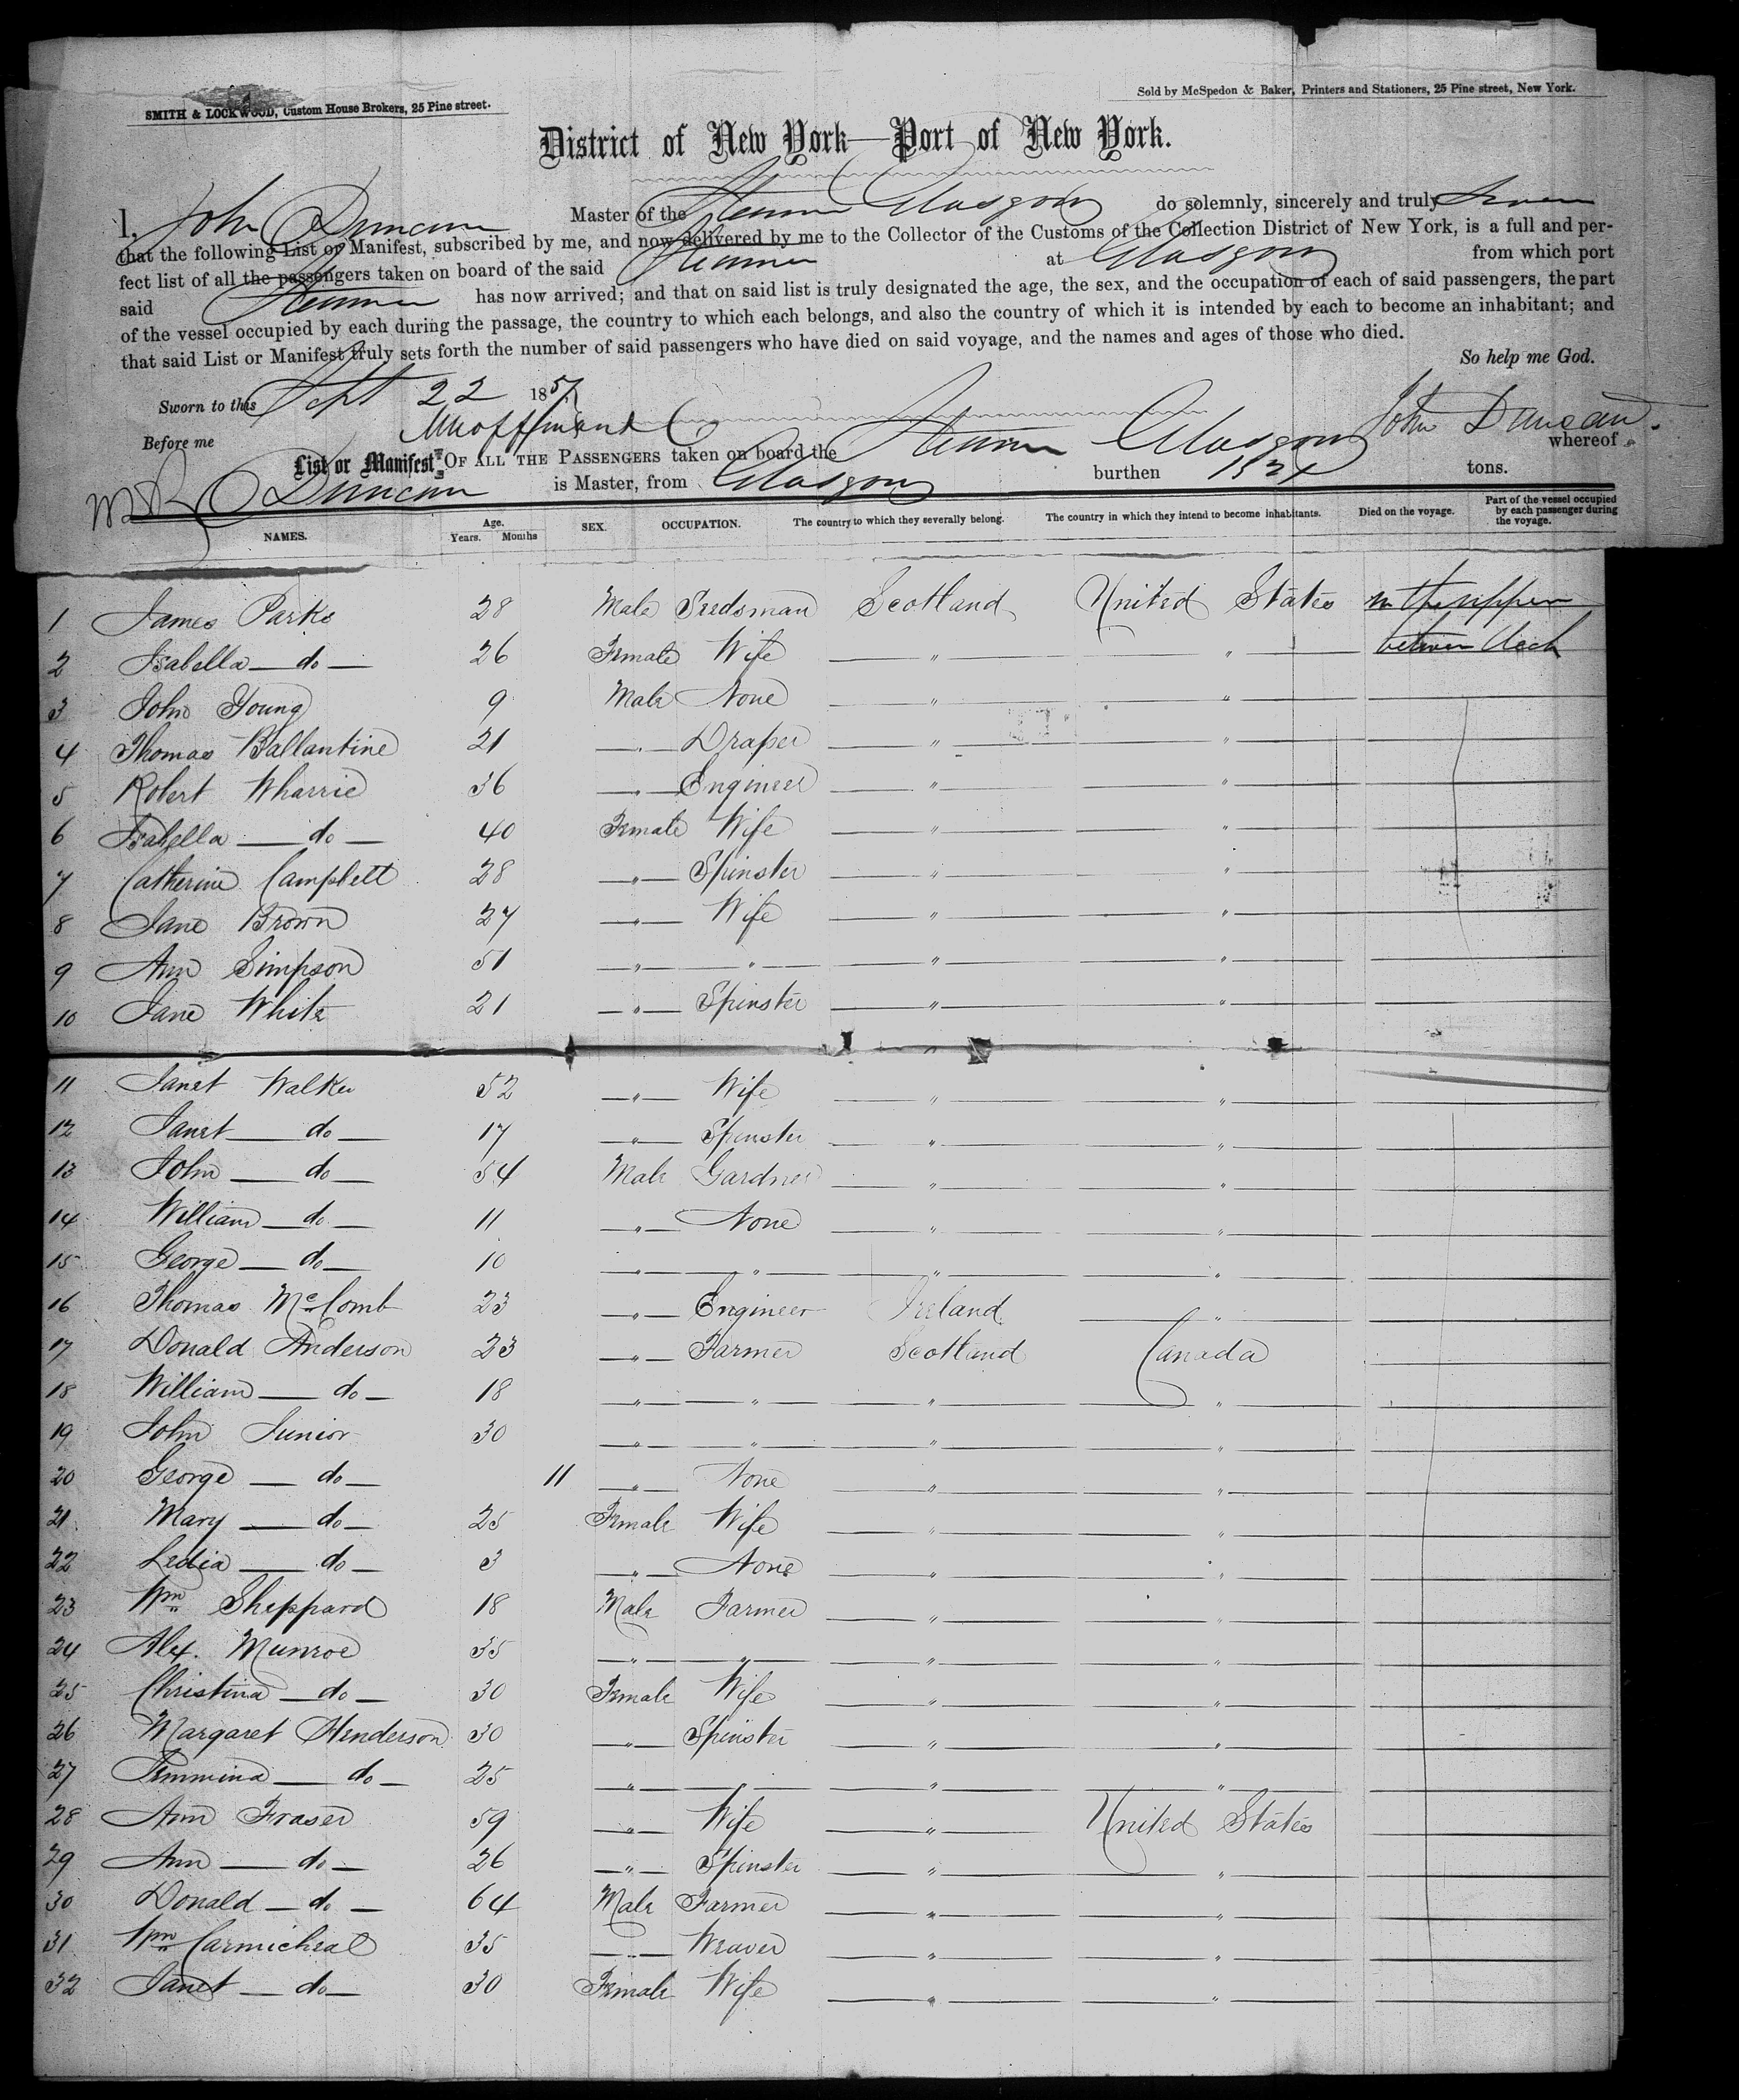 SMITH & LOCKWOOD, Custom House Brokers, 25 Pine street.
Sold by McSpedon & Baker, Printers and Stationers, 25 Pine street, New York.
District of New York—Port of New York.
I, John Duncan Master of the Steamer Glasgow do solemnly, sincerely and truly swear
that the following List or Manifest, subscribed by me, and now delivered by me to the Collector of the Customs of the Collection District of New York, is a full and per-
fect list of all the passengers taken on board of the said Steamer at Glasgow from which port
said Steamer has now arrived; and that on said list is truly designated the age, the sex, and the occupation of each of said passengers, the part
of the vessel occupied by each during the passage, the country to which each belongs, and also the country of which it is intended by each to become an inhabitant; and
that said List or Manifest truly sets forth the number of said passengers who have died on said voyage, and the names and ages of those who died.
So help me God.
Sworn to this Sept 22 1857
John Duncan.
Before me
List or Manifest OF ALL THE PASSENGERS taken on board the Steamer Glasgow whereof
Duncan is Master, from Glasgow burthen tons.
NAMES. Age. Years. Months SEX. OCCUPATION. The country to which they severally belong. The country in which they intend to become inhabitants. Died on the voyage. Part of the vessel occupied by each passenger during the voyage.
1 James Parks 28 Male Seedsman Scotland United States in the upper
2 Isabella — do — 26 Female Wife " " between deck
3 John Young 9 Male None " "
4 Thomas Ballantine 21 " Draper " "
5 Robert Wharrie 36 " Engineer " "
6 Isabella — do — 40 Female Wife " "
7 Catherine Campbell 28 " Spinster " "
8 Jane Brown 27 " Wife " "
9 Ann Simpson 51 " " " "
10 Jane White 21 " Spinster " "
11 Janet Walker 52 " Wife " "
12 Janet — do — 17 " Spinster " "
13 John — do — 54 Male Gardner " "
14 William — do — 11 " None " "
15 George — do — 10 " " " "
16 Thomas McComb 23 " Engineer Ireland "
17 Donald Anderson 23 " Farmer Scotland Canada
18 William — do — 18 " " " "
19 John Junior 30 " " " "
20 George — do — 11 " None " "
21 Mary — do — 25 Female Wife " "
22 Ledia — do — 3 " None " "
23 Wm Sheppard 18 Male Farmer " "
24 Alex. Munroe 35 " " " "
25 Christina — do — 30 Female Wife " "
26 Margaret Henderson 30 " Spinster " "
27 Jemmina — do — 25 " " " "
28 Ann Fraser 59 " Wife " United States
29 Ann — do — 26 " Spinster " "
30 Donald — do — 64 Male Farmer " "
31 Wm Carmicheal 35 " Weaver " "
32 Janet — do — 30 Female Wife " "